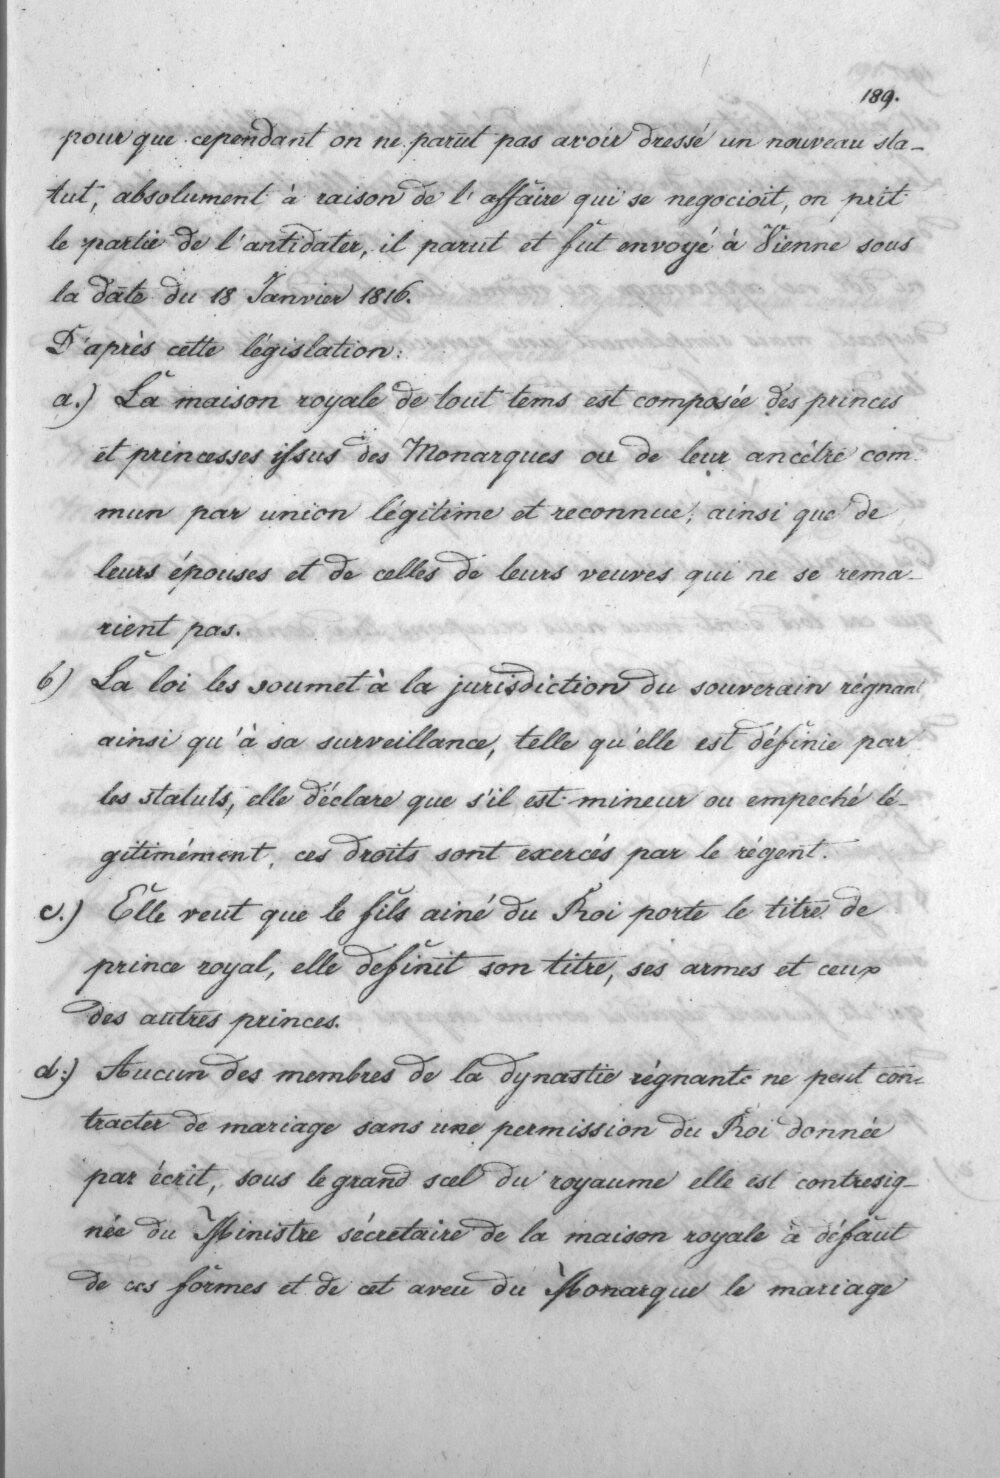 189.
pour que cependant on ne parut pas avoir dressé un nouveau sta-
tut, absolument à raison de l'affaire qui se negocioit, on prit
le partie de l'antidater, il parut et fut envoyé à Vienne sous
la date du 18 Janvier 1816.
D'après cette législation:
a.) La maison royale de tout tems est composée des princes
et princesses issus des Monarques ou de leur ancêtre com-
mun par union légitime et reconnue, ainsi que de
leurs épouses et de celles de leurs veuves qui ne se rema-
rient pas.
b) La loi les soumet à la jurisdiction du souverain régnant
ainsi qu'à sa surveillance, telle qu'elle est définie par
les statuts, elle déclare que s'il est mineur ou empeché lé-
gitimément, ces droits sont exercés par le régent.
c.) Elle veut que le fils ainé du Roi porte le titre de
prince royal, elle definit son titre, ses armes et ceux
des autres princes.
d:) Aucun des membres de la dynastie régnante ne peut con-
tracter de mariage sans une permission du Roi donnée
par écrit, sous le grand scel du royaume elle est contresig-
née du Ministre sécretaire de la maison royale à défaut
de ces formes et de cet aveu du Monarque le mariage